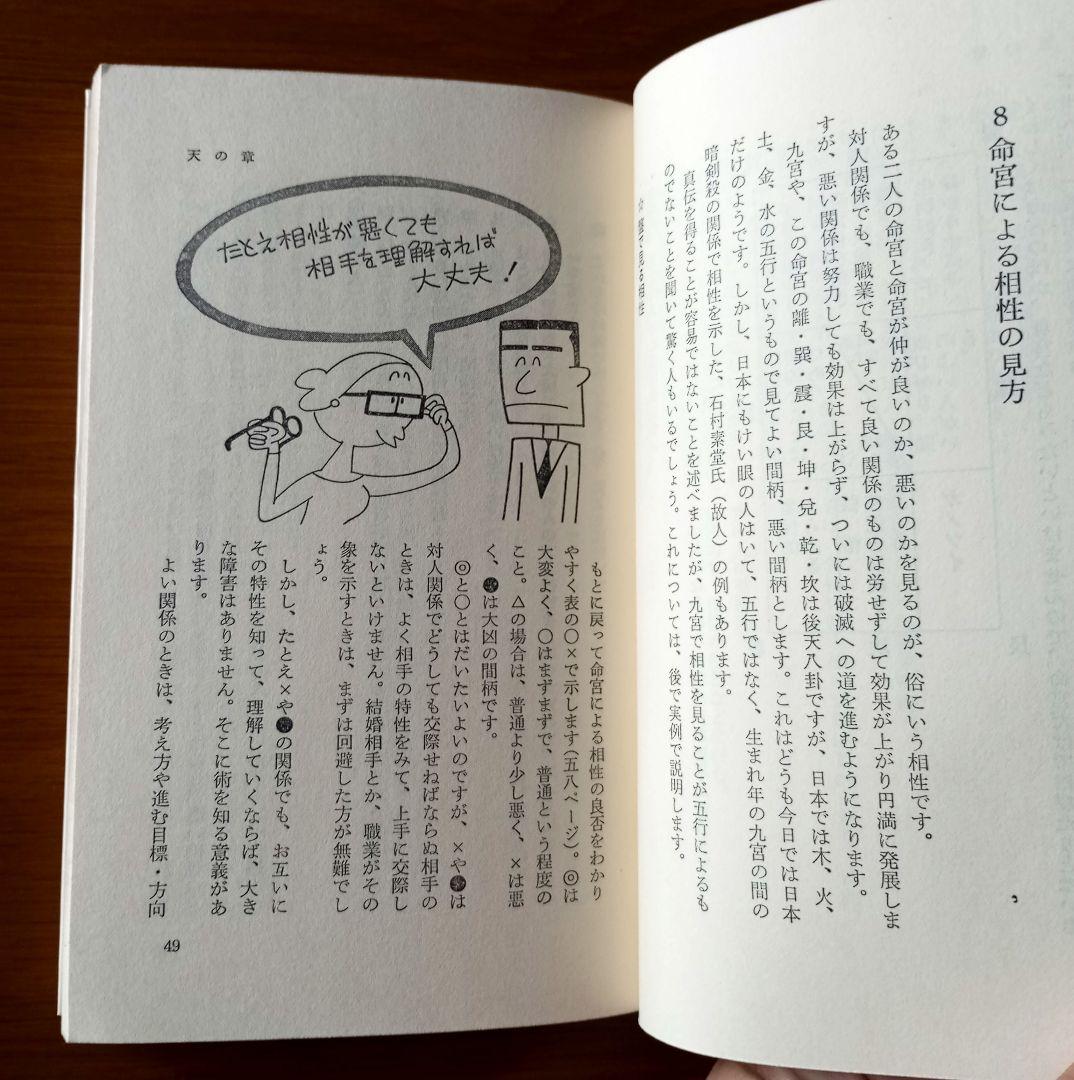 8 命宮による相性の見方
ある二人の命宮と命宮が仲が良いのか、悪いのかを見るのが、俗にいう相性です。
対人関係でも、職業でも、すべて良い関係のものは労せずして効果が上がり円満に発展しま
すが、悪い関係は努力しても効果は上がらず、ついには破滅への道を進むようになります。
九宮や、この命宮の離・巽・震・艮・坤・兌・乾・坎は後天八卦ですが、日本では木、火、
土、金、水の五行というもので見てよい間柄、悪い間柄とします。これはどうも今日では日本
だけのようです。しかし、日本にもけい眼の人はいて、五行ではなく、生まれ年の九宮の間の
暗剣殺の関係で相性を示した、石村素堂氏（故人）の例もあります。
真伝を得ることが容易ではないことを述べましたが、九宮で相性を見ることが五行によるも
のでないことを聞いて驚く人もいるでしょう。これについては、後で実例で説明します。
で見る相性
天の章
たとえ相性が悪くても
相手を理解すれば
大丈夫！
もとに戻って命宮による相性の良否をわかり
やすく表の○×で示します（五八ページ）。◎は
大変よく、○はまずまずで、普通という程度の
こと。△の場合は、普通より少し悪く、×は悪
く、●は大凶の間柄です。
◎と○とはだいたいよいのですが、×や●は
対人関係でどうしても交際せねばならぬ相手の
ときは、よく相手の特性をみて、上手に交際し
ないといけません。結婚相手とか、職業がその
象を示すときは、まずは回避した方が無難でし
ょう。
しかし、たとえ×や●の関係でも、お互いに
その特性を知って、理解していくならば、大き
な障害はありません。そこに術を知る意義があ
ります。
よい関係のときは、考え方や進む目標・方向
49